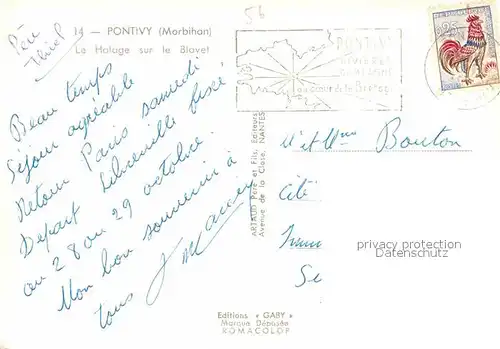 56
Père
Thiel
14 — PONTIVY (Morbihan)
Le Halage sur le Blavet
Beau temps
Séjour agréable
Retour Paris samedi
Départ Libreville fixé
au 28 ou 29 octobre.
Mon bon souvenir à
tous
PONTIVY
RIVIERES
au cœur de la Bretagne
0,25
ARTAUD Père et Fils, Éditeurs
Avenue de la Close, NANTES
M et Mme Bouton
Cité
Imm
Se
privacy protection
Datenschutz
Editions « GABY »
Marque Déposée
ROMACOLOR